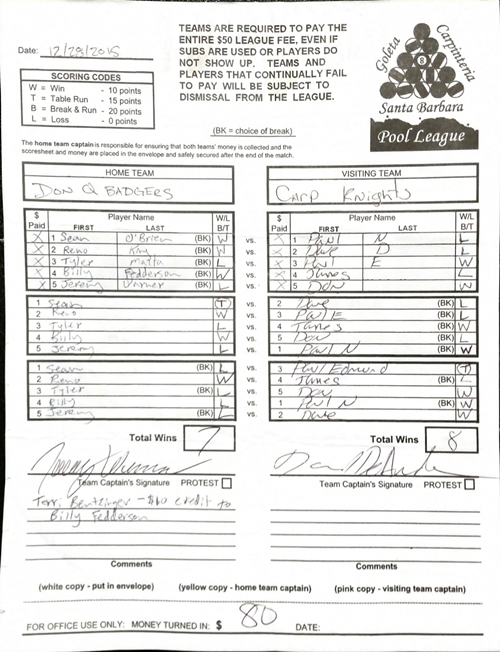 Date: 12/28/2015
TEAMS ARE REQUIRED TO PAY THE
ENTIRE $50 LEAGUE FEE, EVEN IF
SUBS ARE USED OR PLAYERS DO
NOT SHOW UP. TEAMS AND
PLAYERS THAT CONTINUALLY FAIL
TO PAY WILL BE SUBJECT TO
DISMISSAL FROM THE LEAGUE.
(BK = choice of break)
Goleta
Carpinteria
8
Santa Barbara
Pool League
SCORING CODES
W = Win - 10 points
T = Table Run - 15 points
B = Break & Run - 20 points
L = Loss - 0 points
The home team captain is responsible for ensuring that both teams' money is collected and the
scoresheet and money are placed in the envelope and safely secured after the end of the match.
HOME TEAM VISITING TEAM
DON Q BADGERS CARP Knights
$ Paid Player Name FIRST LAST W/L B/T $ Paid Player Name FIRST LAST W/L B/T
X 1 Sean O'Brien (BK) W vs. X 1 Paul N L
X 2 Reno (BK) W vs. X 2 Dave D L
X 3 Tyler Matta (BK) L vs. X 3 Paul E W
X 4 Billy Fedderson (BK) W vs. X 4 James L
X 5 Jeremy (BK) L vs. X 5 Don W
1 Sean (T) vs. 2 Dave (BK) L
2 Reno W vs. 3 Paul E (BK) L
3 Tyler L vs. 4 James (BK) W
4 Billy W vs. 5 Don (BK) L
5 Jeremy L vs. 1 Paul N (BK) W
1 Sean (BK) L vs. 3 Paul Edward (T)
2 Reno W vs. 4 James (BK) L
3 Tyler (BK) L vs. 5 Don W
4 Billy L vs. 1 Paul N (BK) W
5 Jeremy (BK) L vs. 2 Dave W
Total Wins 7 Total Wins 8
Team Captain's Signature PROTEST Team Captain's Signature PROTEST
Terri Bentzinger - $40 credit to
Billy Fedderson
Comments Comments
(white copy - put in envelope) (yellow copy - home team captain) (pink copy - visiting team captain)
FOR OFFICE USE ONLY: MONEY TURNED IN: $ 80 DATE: